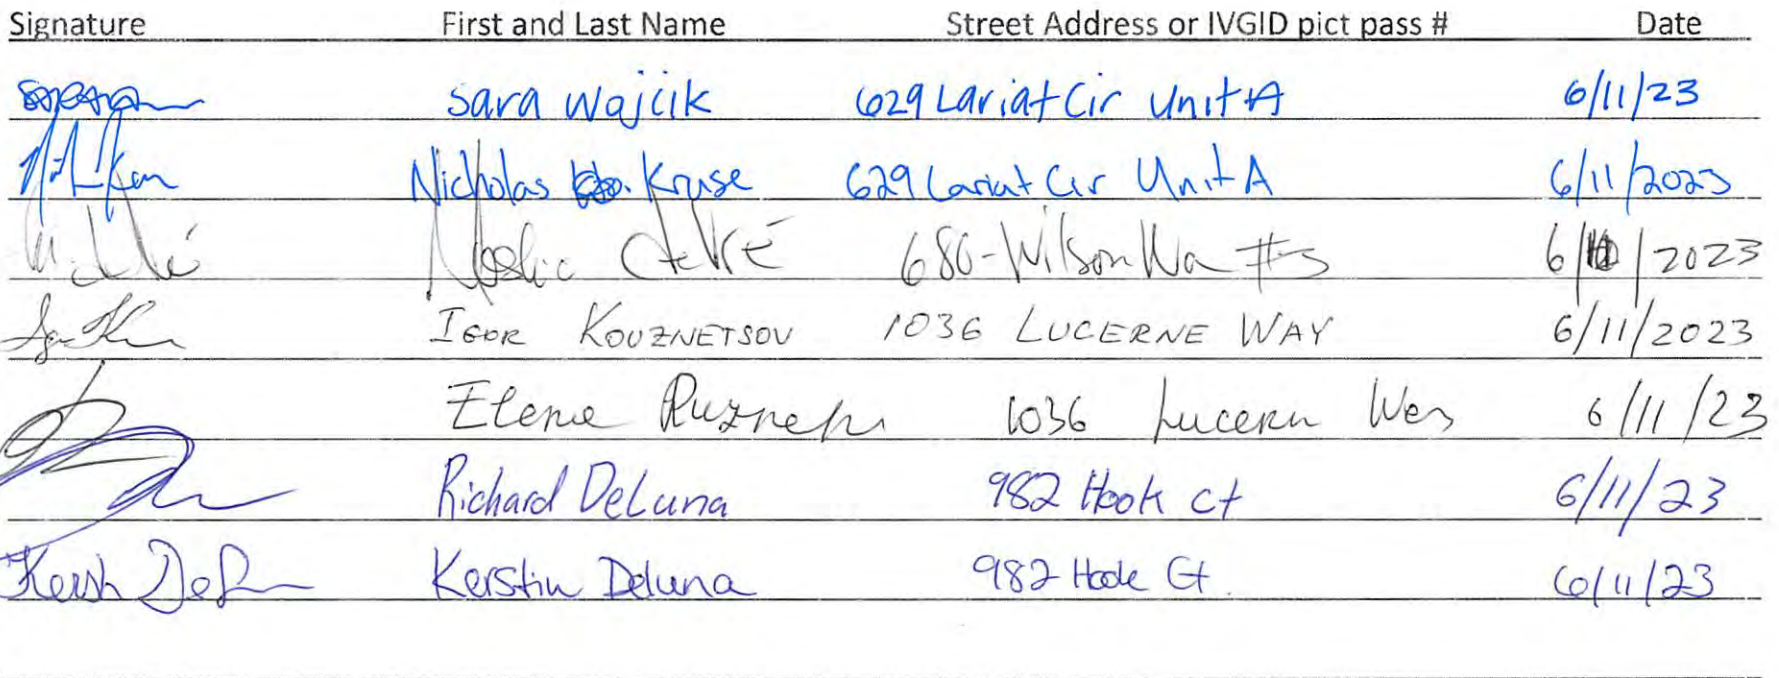 Signature First and Last Name Street Address or IVGID pict pass # Date
Sara Wojcik 629 Lariat Cir Unit A 6/11/23
Nicholas Kruse 629 Lariat Cir Unit A 6/11/2023
680-Wilson Wa #5 6/ /2023
IGOR KOUZNETSOV 1036 LUCERNE WAY 6/11/2023
Elena 1036 Lucern 6/11/23
Richard DeLuna 982 Hook ct 6/11/23
Kerstin Deluna 982 Ct. 6/11/23